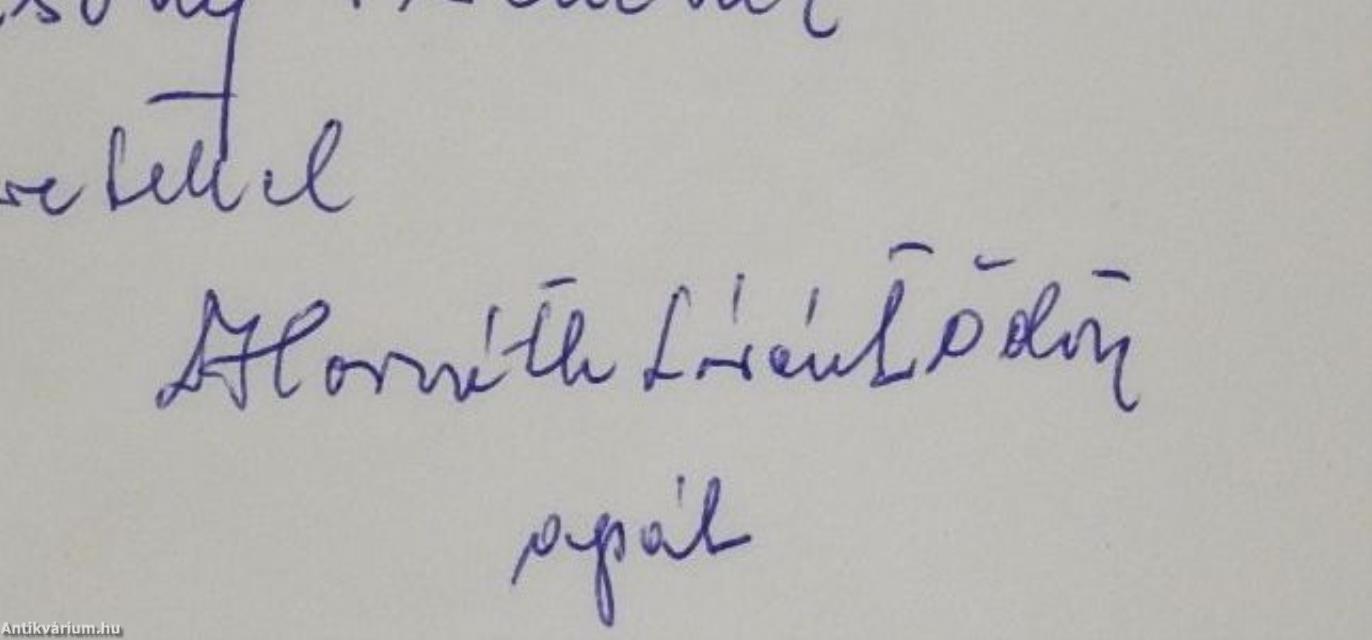 retettel
Horváth Lóránt Ödön
apát
Antikvárium.hu